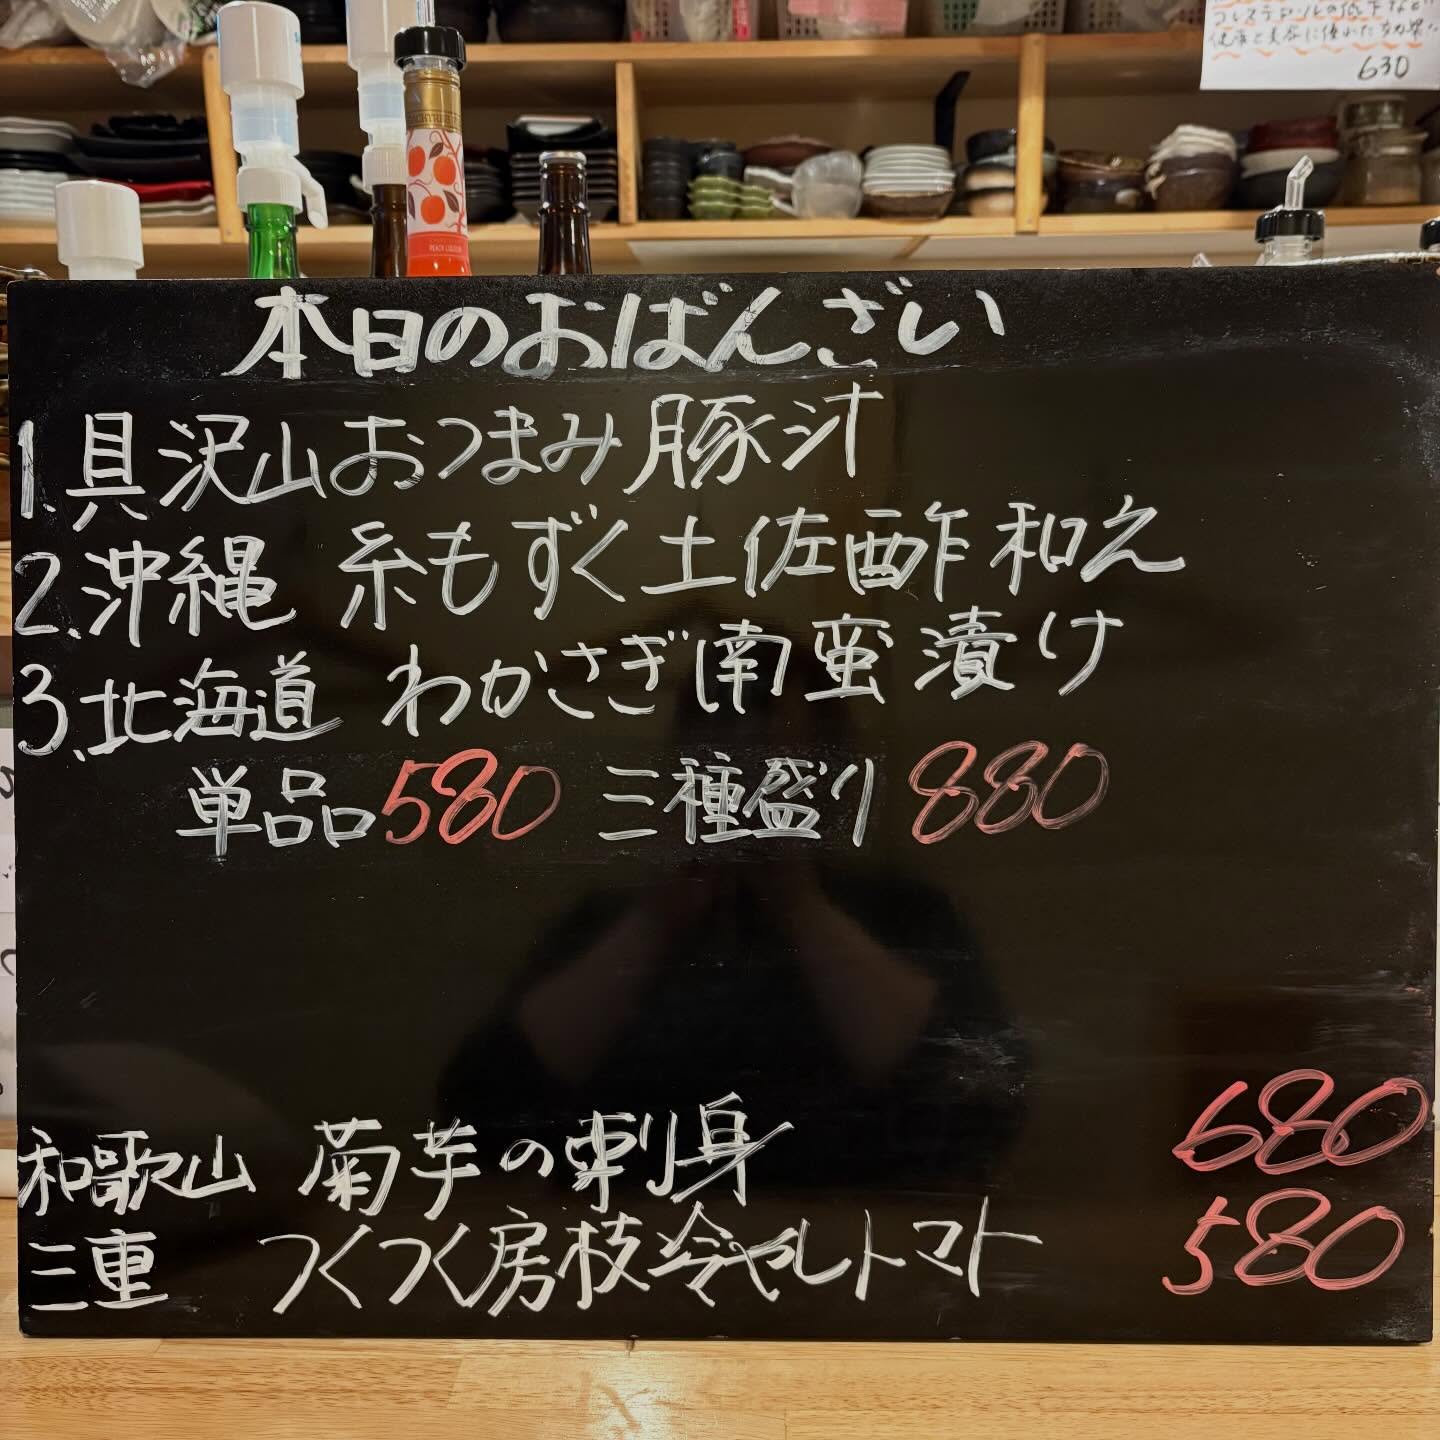 コレステロールの低下など
健康と美容に優れた効果
630
PEACH LIQUEUR
本日のおばんざい
1.具沢山おつまみ豚汁
2.沖縄 糸もずく土佐酢和え
3.北海道 わかさぎ南蛮漬け
単品580 三種盛り880
和歌山 菊芋の刺身 680
三重 つくつく房枝冷やしトマト 580